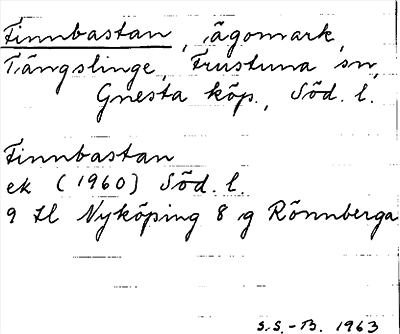 Finnbastan, ägomark,
Tängslinge, Frustuna sn,
Gnesta köp., Söd. l.
Finnbastan
ek (1960) Söd. l.
9 H1 Nyköping 8 g Rönnberga
S.S.-B. 1963